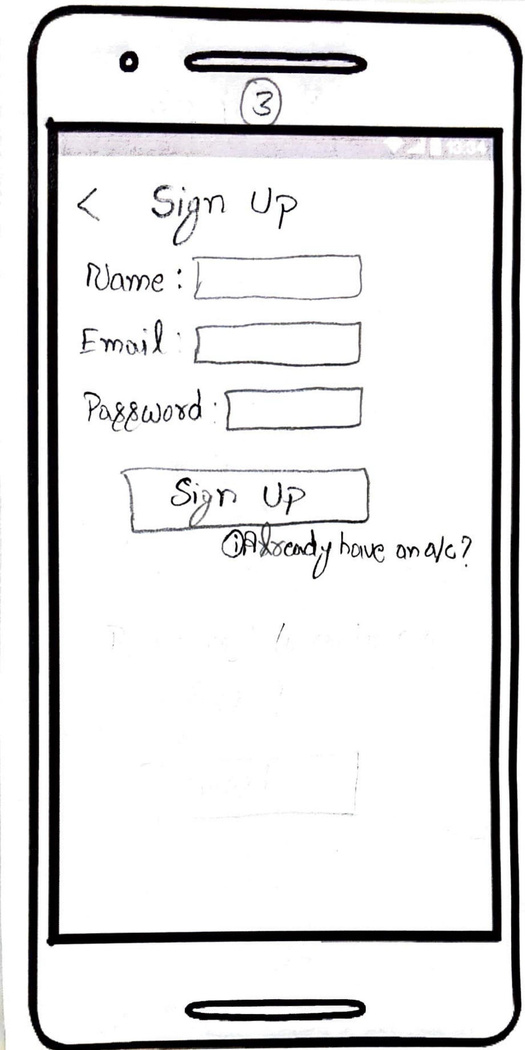 3
< Sign Up
Name :
Email :
Password :
Sign Up
①Already have an a/c?